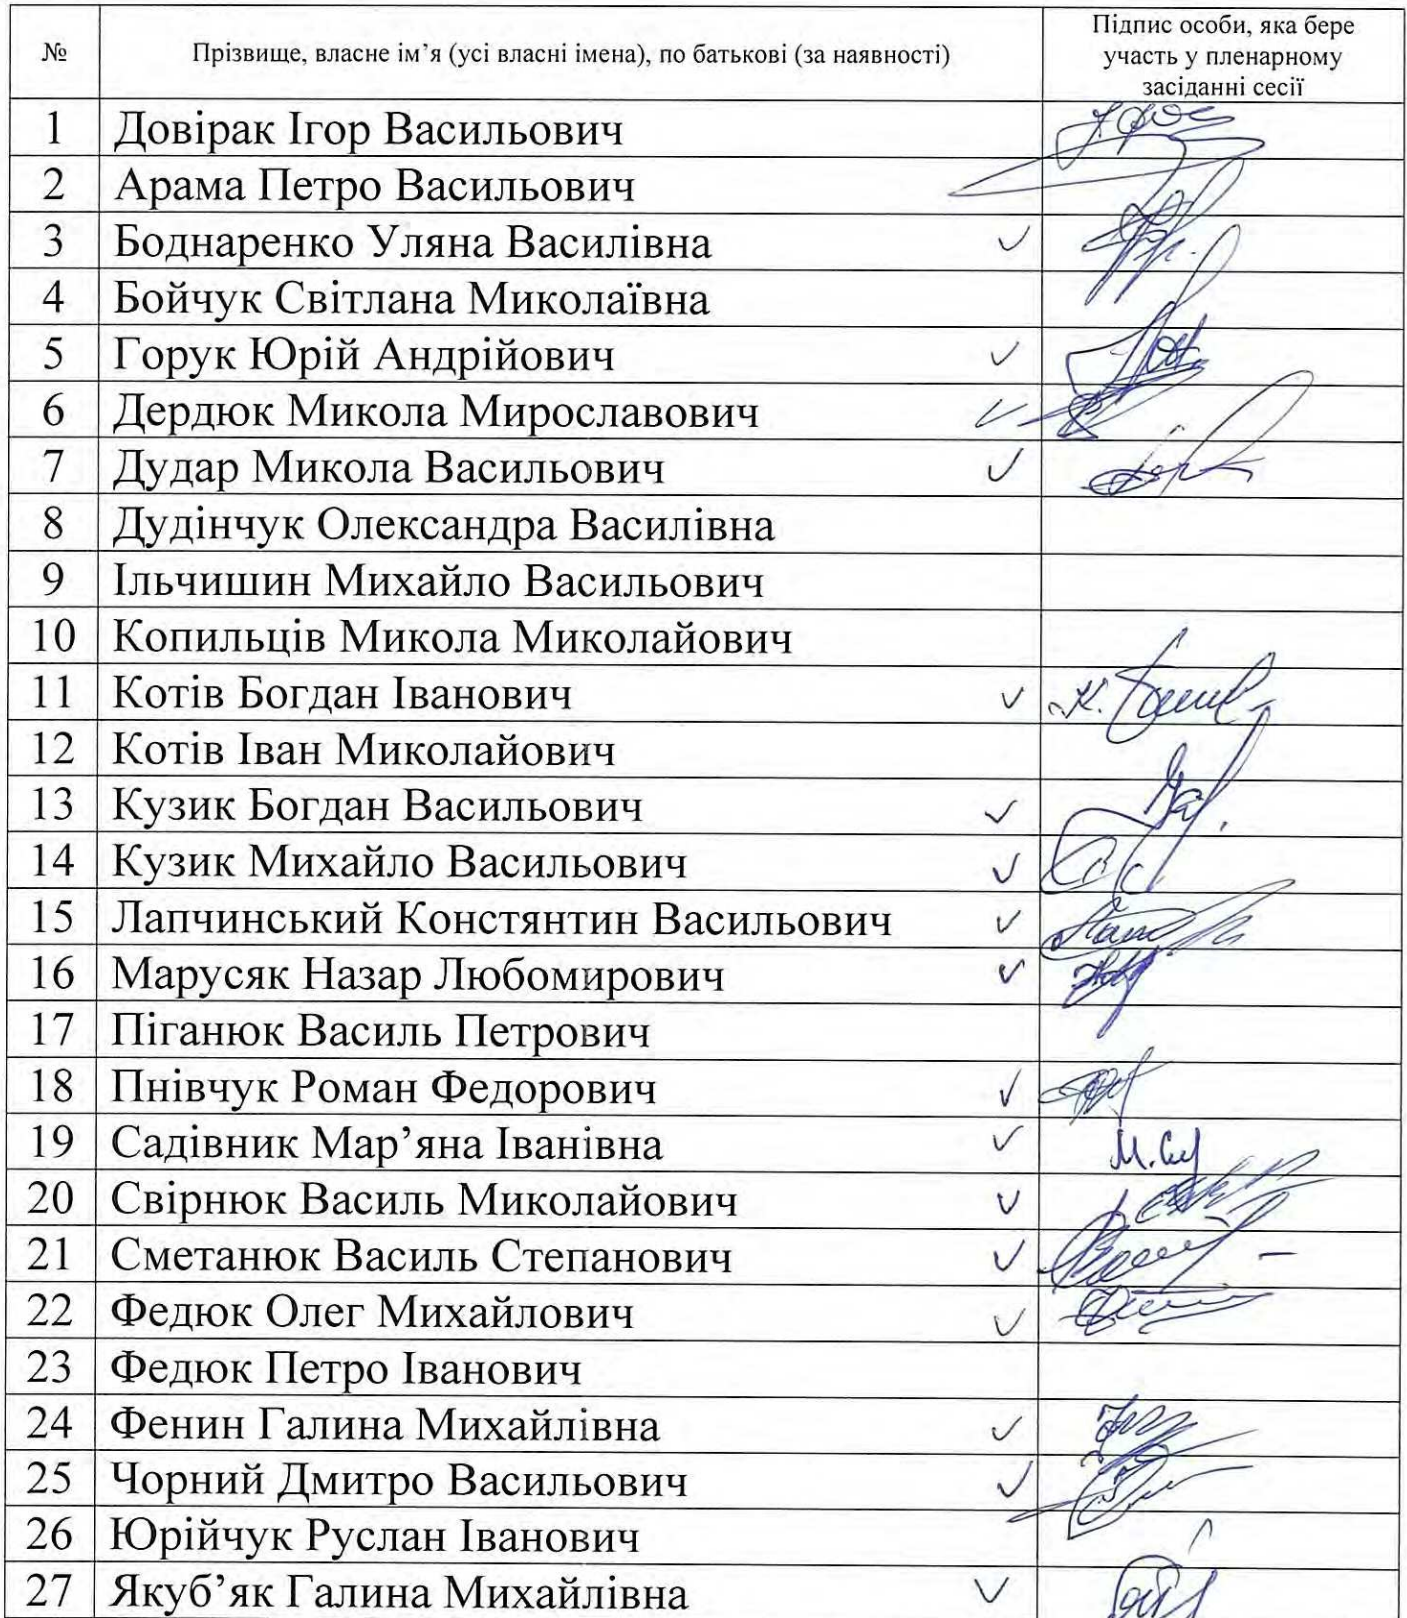 №
Прізвище, власне ім’я (усі власні імена), по батькові (за наявності)
Підпис особи, яка бере
участь у пленарному
засіданні сесії
1 Довірак Ігор Васильович
2 Арама Петро Васильович
3 Боднаренко Уляна Василівна
4 Бойчук Світлана Миколаївна
5 Горук Юрій Андрійович
6 Дердюк Микола Мирославович
7 Дудар Микола Васильович
8 Дудінчук Олександра Василівна
9 Ільчишин Михайло Васильович
10 Копильців Микола Миколайович
11 Котів Богдан Іванович
12 Котів Іван Миколайович
13 Кузик Богдан Васильович
14 Кузик Михайло Васильович
15 Лапчинський Констянтин Васильович
16 Марусяк Назар Любомирович
17 Піганюк Василь Петрович
18 Пнівчук Роман Федорович
19 Садівник Мар’яна Іванівна
20 Свірнюк Василь Миколайович
21 Сметанюк Василь Степанович
22 Федюк Олег Михайлович
23 Федюк Петро Іванович
24 Фенин Галина Михайлівна
25 Чорний Дмитро Васильович
26 Юрійчук Руслан Іванович
27 Якуб’як Галина Михайлівна